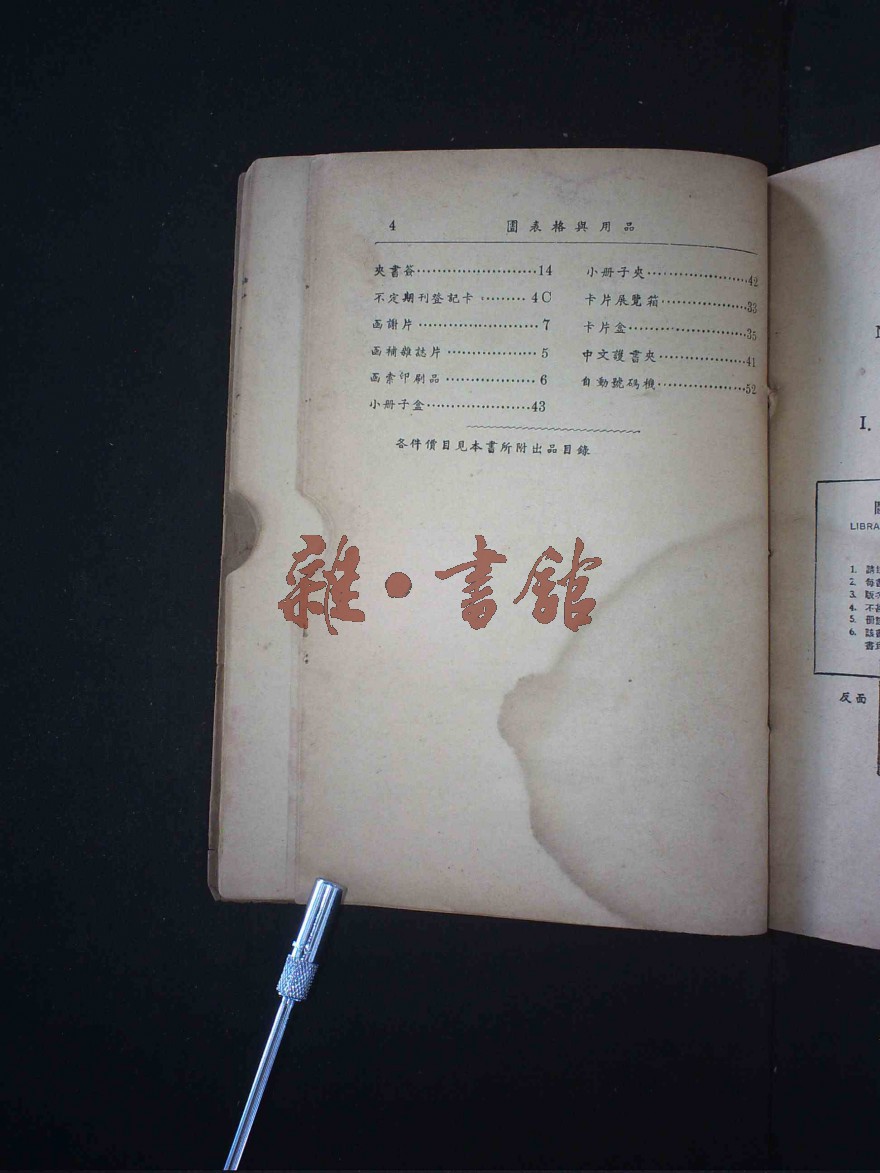 4 圕表格與用品
夾書簽························14
不定期刊登記卡·········4C
函謝片························7
函補雜誌片··················5
函索印刷品··················6
小册子盒·····················43
小册子夾····················42
卡片展覽箱·················33
卡片盒·······················35
中文護書夾·················41
自動號碼機·················52
各件價目見本書所附出品目錄
雜·書館
I.
LIBRA
1.
2. 每
3. 版
4. 不
5.
6. 該書
反面